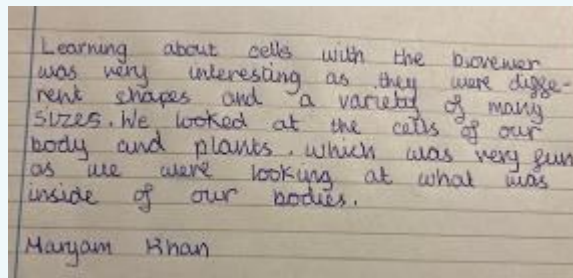 Learning about cells with the bioviewer
was very interesting as they were diffe-
rent shapes and a variety of many
sizes. We looked at the cells of our
body and plants. which was very fun
as we were looking at what was
inside of our bodies.
Maryam Khan